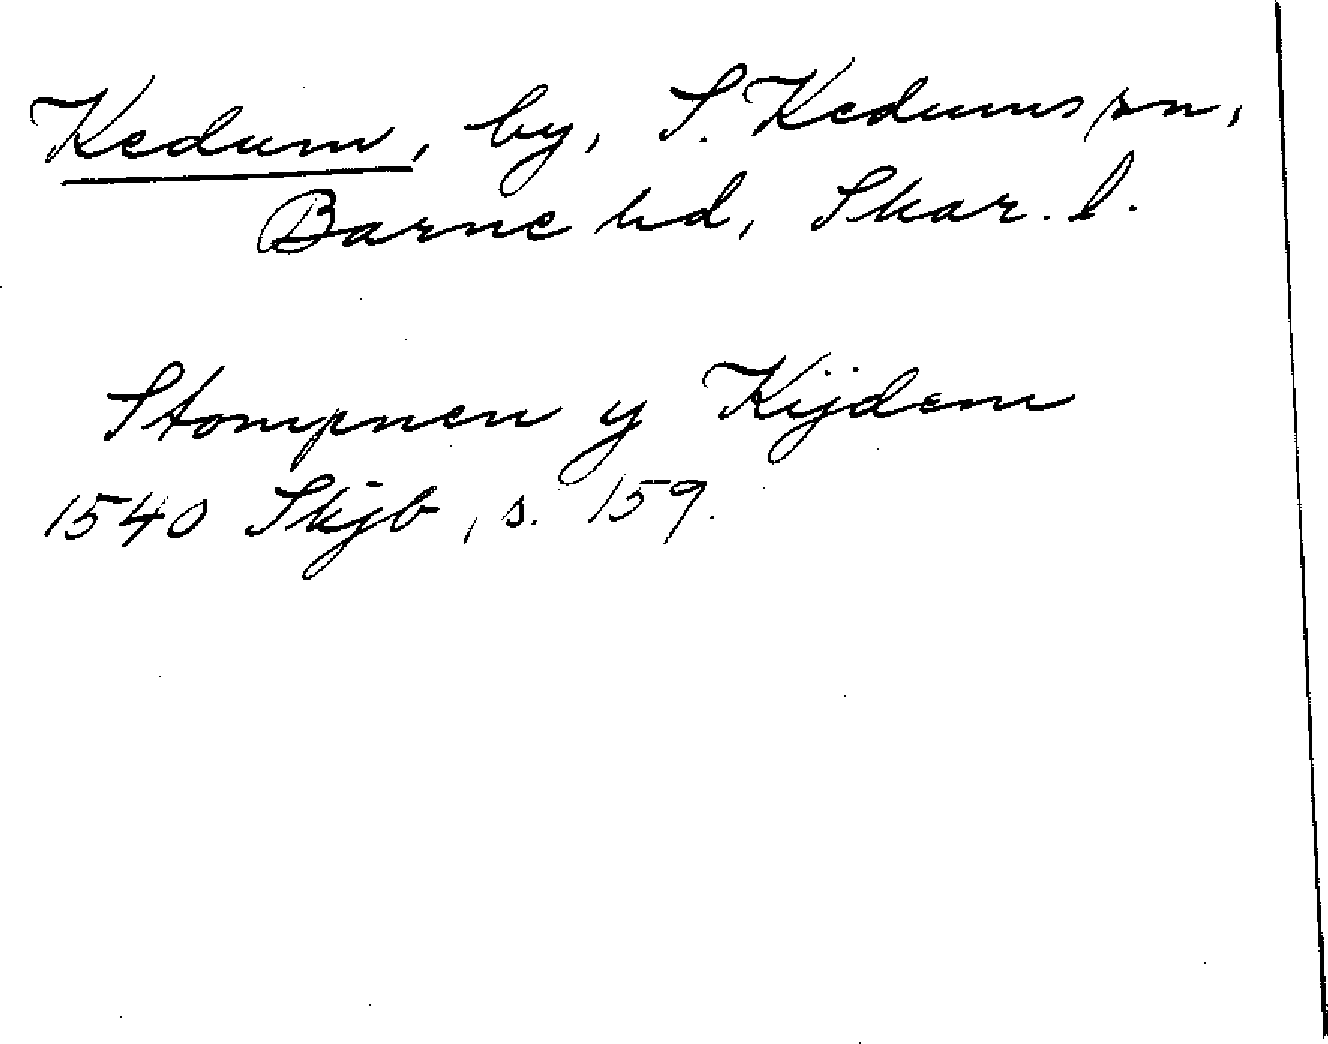 Kedum, by, S. Kedums sn,
Barne hd, Skar. l.
Stompnen y Kijdem
1540 Skjb, s. 159.